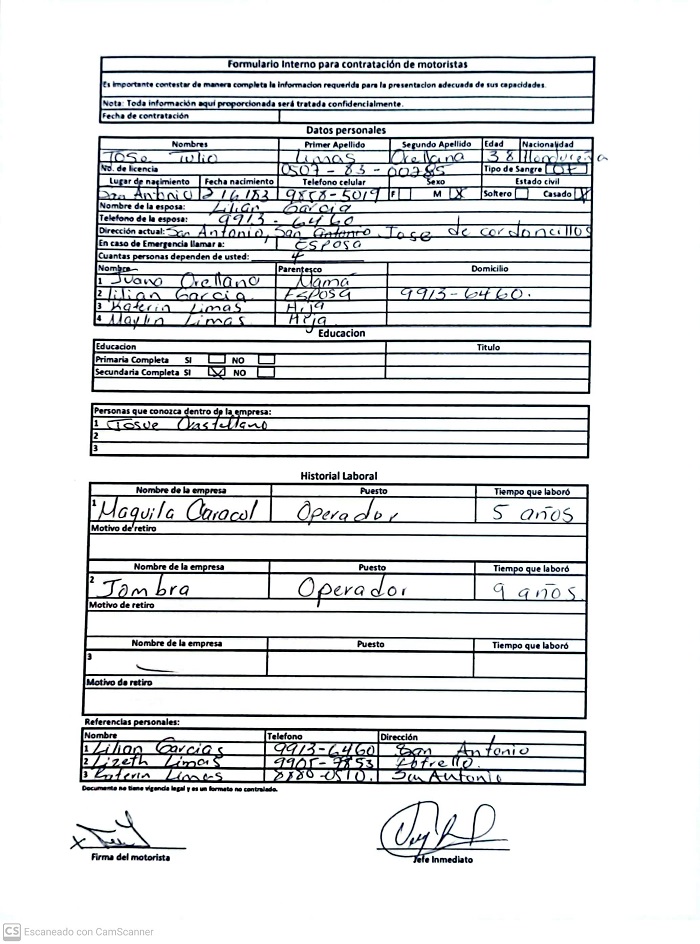 Formulario Interno para contratación de motoristas
Es importante contestar de manera completa la informacion requerida para la presentacion adecuada de sus capacidades.
Nota: Toda información aquí proporcionada será tratada confidencialmente.
Fecha de contratación
Datos personales
Nombres Primer Apellido Segundo Apellido Edad Nacionalidad
Jose Tulio Limas Orellana 38 Hondureña
No. de licencia 0507-83-00285 Tipo de Sangre
Lugar de nacimiento Fecha nacimiento Telefono celular Sexo Estado civil
San Antonio 2 16 183 9858-5019 F M X Soltero Casado X
Nombre de la esposa: Lilian Garcia
Telefono de la esposa: 9913-6460
Dirección actual: San Antonio, San Antonio, Jose de cordoncillos
En caso de Emergencia llamar a: Esposa
Cuantas personas dependen de usted: 4
Nombre Parentesco Domicilio
1 Juana Orellano Mamá
2 Lilian Garcia Esposa 9913-6460.
3 Katerin Limas Hija
4 Maylin Limas Hija
Educacion
Educacion Titulo
Primaria Completa SI NO
Secundaria Completa SI X NO
Personas que conozca dentro de la empresa:
1 Josue Castellano
2
3
Historial Laboral
Nombre de la empresa Puesto Tiempo que laboró
1 Maquila Caracol Operador 5 años
Motivo de retiro
Nombre de la empresa Puesto Tiempo que laboró
2 Jombra Operador 9 años
Motivo de retiro
Nombre de la empresa Puesto Tiempo que laboró
3
Motivo de retiro
Referencias personales:
Nombre Telefono Dirección
1 Lilian Garcias 9913-6460 San Antonio
2 Lizeth Limas 9905-7853
3 Katerin Limas 8880-0510. San Antonio
Documento no tiene vigencia legal y es un formato no controlado.
X
Firma del motorista Jefe Inmediato
CS Escaneado con CamScanner